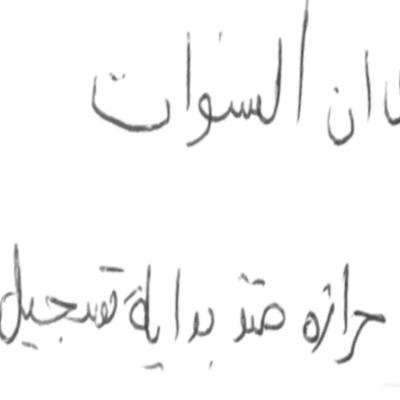 ان السنوات
حرارة منذ بداية تسجيل